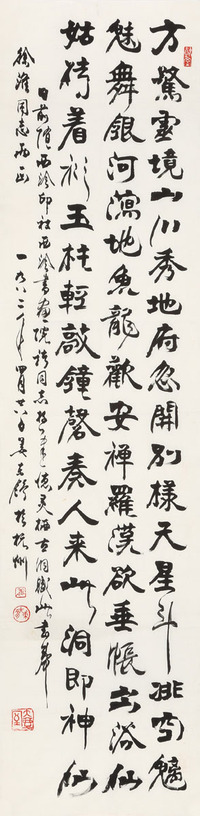 方驚靈境山川秀地府忽開別樣天星斗排空魑
魅舞銀河瀉地魚龍歡安禪羅漢欲垂帳出浴仙
姑待着衫玉柱輕敲鐘磬奏人来此洞即神仙
日前隨西泠印社西泠書画院諸同志灵栖古洞此書奉
徐同志两正 一九八二年四月廿八日姜东舒於杭州